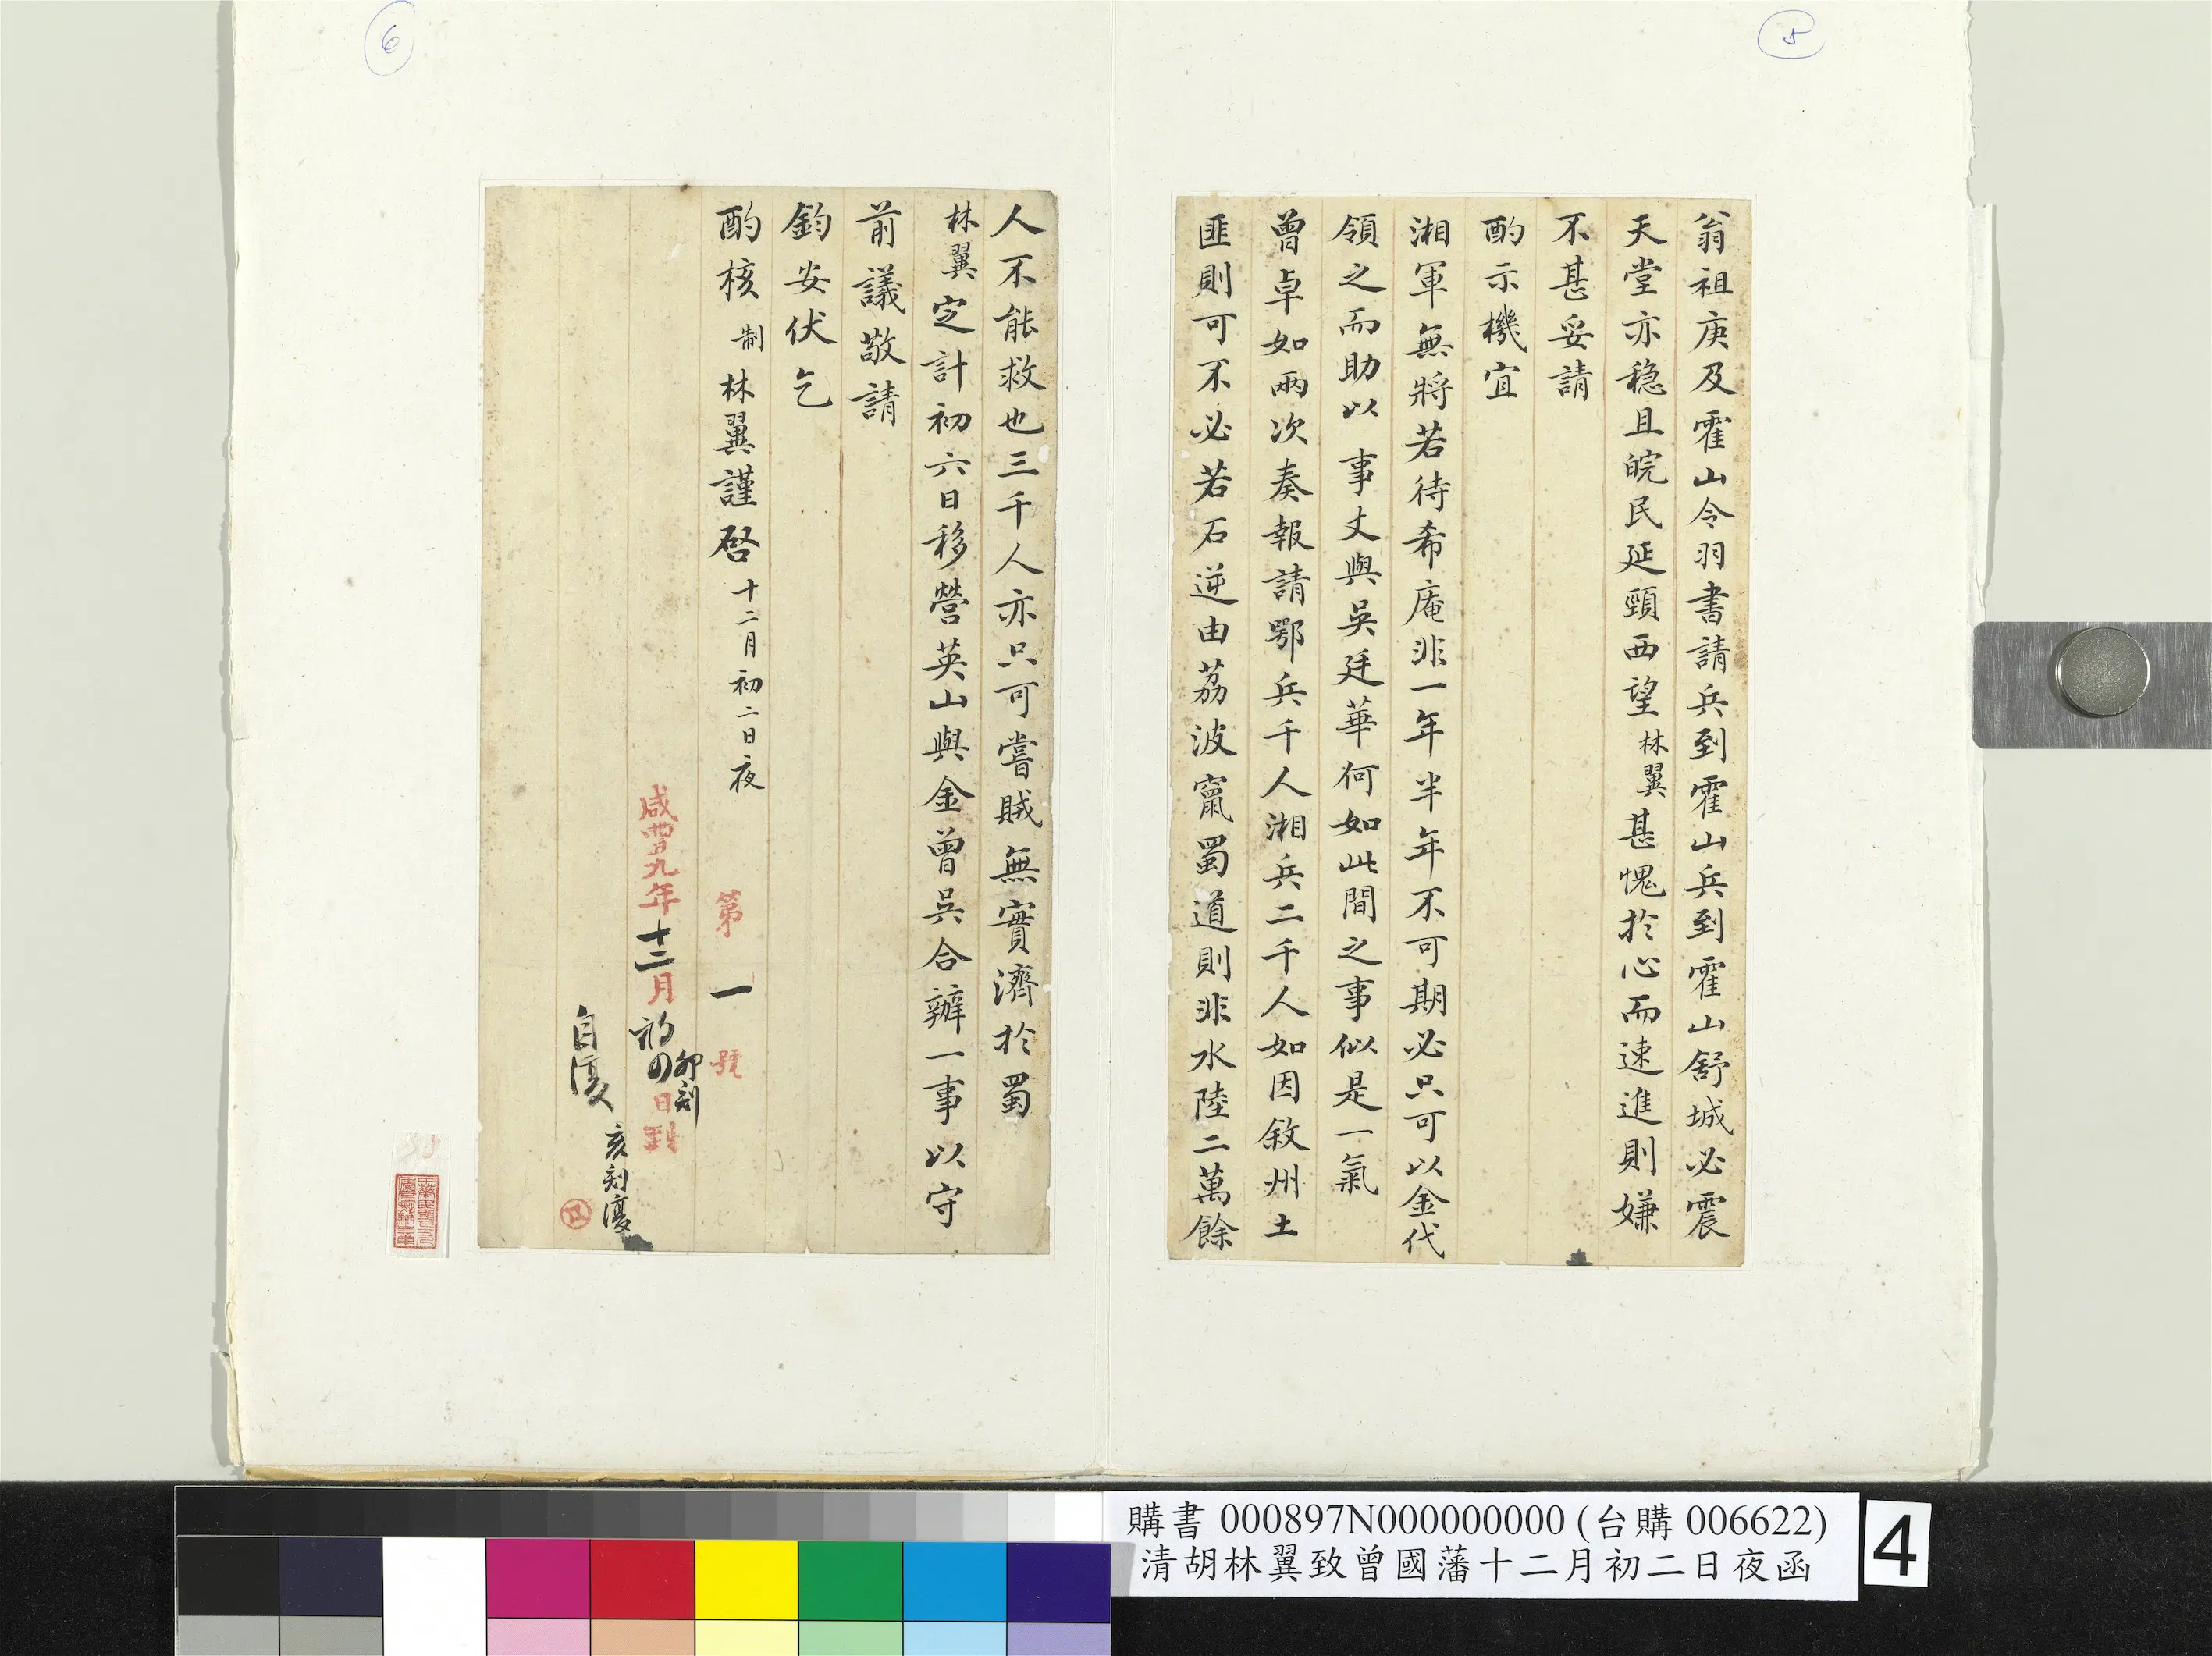 5
翁祖庚及霍山令羽書請兵到霍山兵到霍山舒城必震
天堂亦穩且皖民延頸西望林翼甚愧於心而速進則嫌
不甚妥請
酌示機宜
湘軍無將若待希庵非一年半年不可期必只可以金代
領之而助以事丈與吳廷華何如此間之事似是一氣
曾卓如兩次奏報請鄂兵千人湘兵二千人如因敘州土
匪則可不必若石逆由荔波竄蜀道則非水陸二萬餘
6
人不能救也三千人亦只可嘗賊無實濟於蜀
林翼定計初六日移營英山與金曾吳合辦一事以守
前議敬請
鈞安伏乞
酌核 制林翼謹啓 十二月初二日夜
第一號
咸豐九年十二月初四日到
卯刻
亥刻復
自復
購書 000897N000000000 (台購 006622)
清胡林翼致曾國藩十二月初二日夜函
4